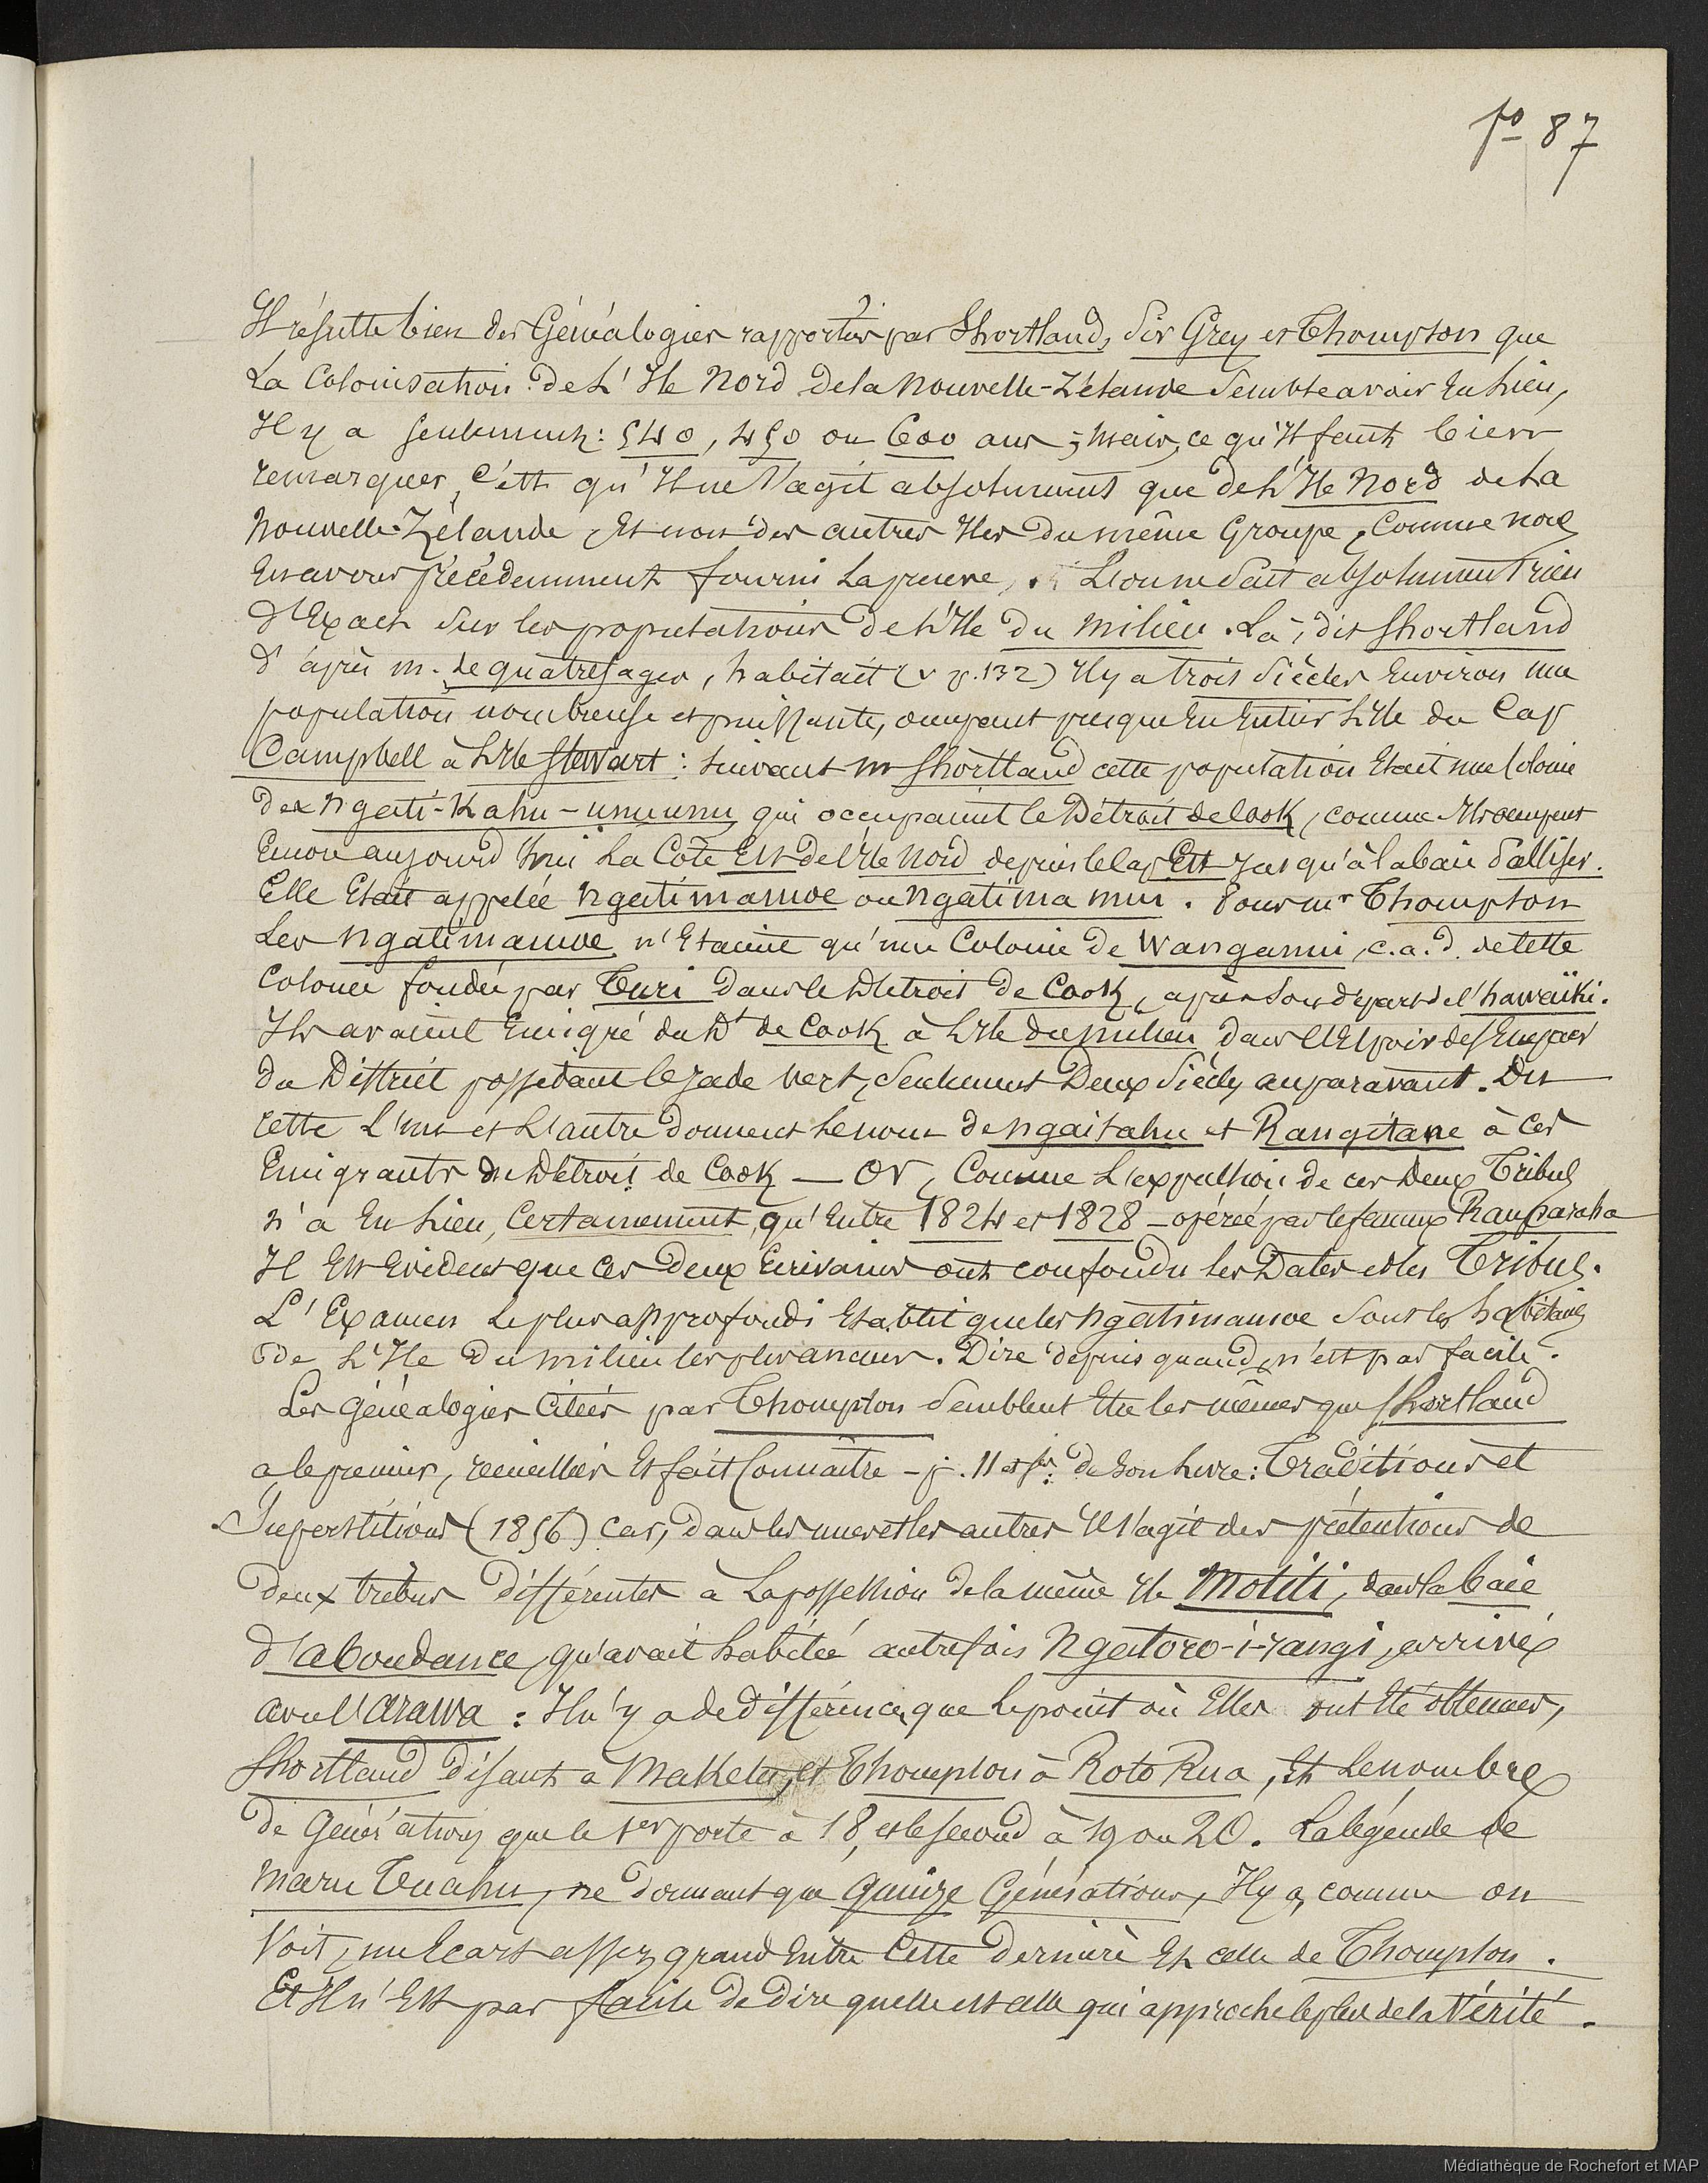 fo 87
Il résulte bien des Généalogies rapportées par Shortland, Sir Grey et Thompson que
La Colonisation de L'Ile Nord de la Nouvelle-Zélande Semble avoir Eu Lieu,
Il y a seulement: 540, 450 ou 600 ans ; mais, ce qu'Il faut bien
remarquer, c'est qu'Il ne s'agit absolument que de L'Ile Nord de La
Nouvelle-Zélande Et non des autres Iles du même Groupe, Comme nous
En avons précédemment fourni La preuve. L'on ne Sait absolument rien
d'Exact Sur les populations de L'Ile du Milieu. Là, dit Shortland
d'après M. de quatrefages, habitait (v p. 132) Il y a trois Siècles Environ une
population nombreuse et puissante, occupant presque En Entier L'Ile du Cap
Campbell à L'Ile Stewart : Suivant M Shortland cette population Etait une Colonie
des Ngati-Kahu-unuunu qui occupaient le Détroit de Cook, comme Ils occupent
Encore aujourd'hui La Côte Est de L'Ile Nord depuis le Cap Est Jusqu'à la baie Palliser.
Elle Etait appelée Ngatimamoe ou Ngatima mui. Pour Mr Thompson
Les Ngatimamoe n'Etaient qu'une Colonie de Wanganui, c.a.d. de cette
Colonie fondée par Turi Dans le Détroit de Cook, après Son départ de l'hawaïki.
Ils avaient Emigré du Dt de Cook à L'Ile du Milieu dans l'Espoir de s'Emparer
du District possédant le Jade vert, Seulement Deux Siècles auparavant. Du
reste L'un et L'autre donnent Le nom de Ngaitahu et Rangitane à Ces
Emigrants du Détroit de Cook — Or, Comme L'expulsion de ces Deux Tribus
n'a Eu Lieu, Certainement, qu'Entre 1824 et 1828 — opérée par le fameux Rauparaha
Il Est Evident que Ces Deux Ecrivains ont confondu les Dates et les Tribus.
L'Examen Le plus approfondi Etablit que les Ngatimamoe Sont les habitans
de L'Ile Du Milieu les plus anciens. Dire depuis quand, n'est pas facile.
Les Généalogies Citées par Thompson Semblent Etre les mêmes que Shortland
a, le premier, recueillies Et fait Connaître — p. 11 et Stes de son Livre : Traditions et
Superstitions (1856) Car, dans les unes et les autres Il s'agit des prétentions de
Deux tribus différentes à La possession de la même Ile Motiti, dans la baie
d'abondance, qu'avait habitée autrefois Ngatoro-i-rangi, arrivé
avec l'Arawa : Il n'y a de différence que Le point où Elles ont Eté obtenues,
Shortland disant à Maketu, et Thompson à Roto Rua, Et Le nombre
de Générations que le 1er porte à 18, et le Second à 19 ou 20. La légende de
Maru Tuahu, ne donnant que quinze Générations, Il y a, comme on
Voit, un Ecart assez grand Entre Cette dernière Et celle de Thompson.
Et Il n'Est pas facile de dire quelle est celle qui approche le plus de la Vérité.
Médiathèque de Rochefort et MAP